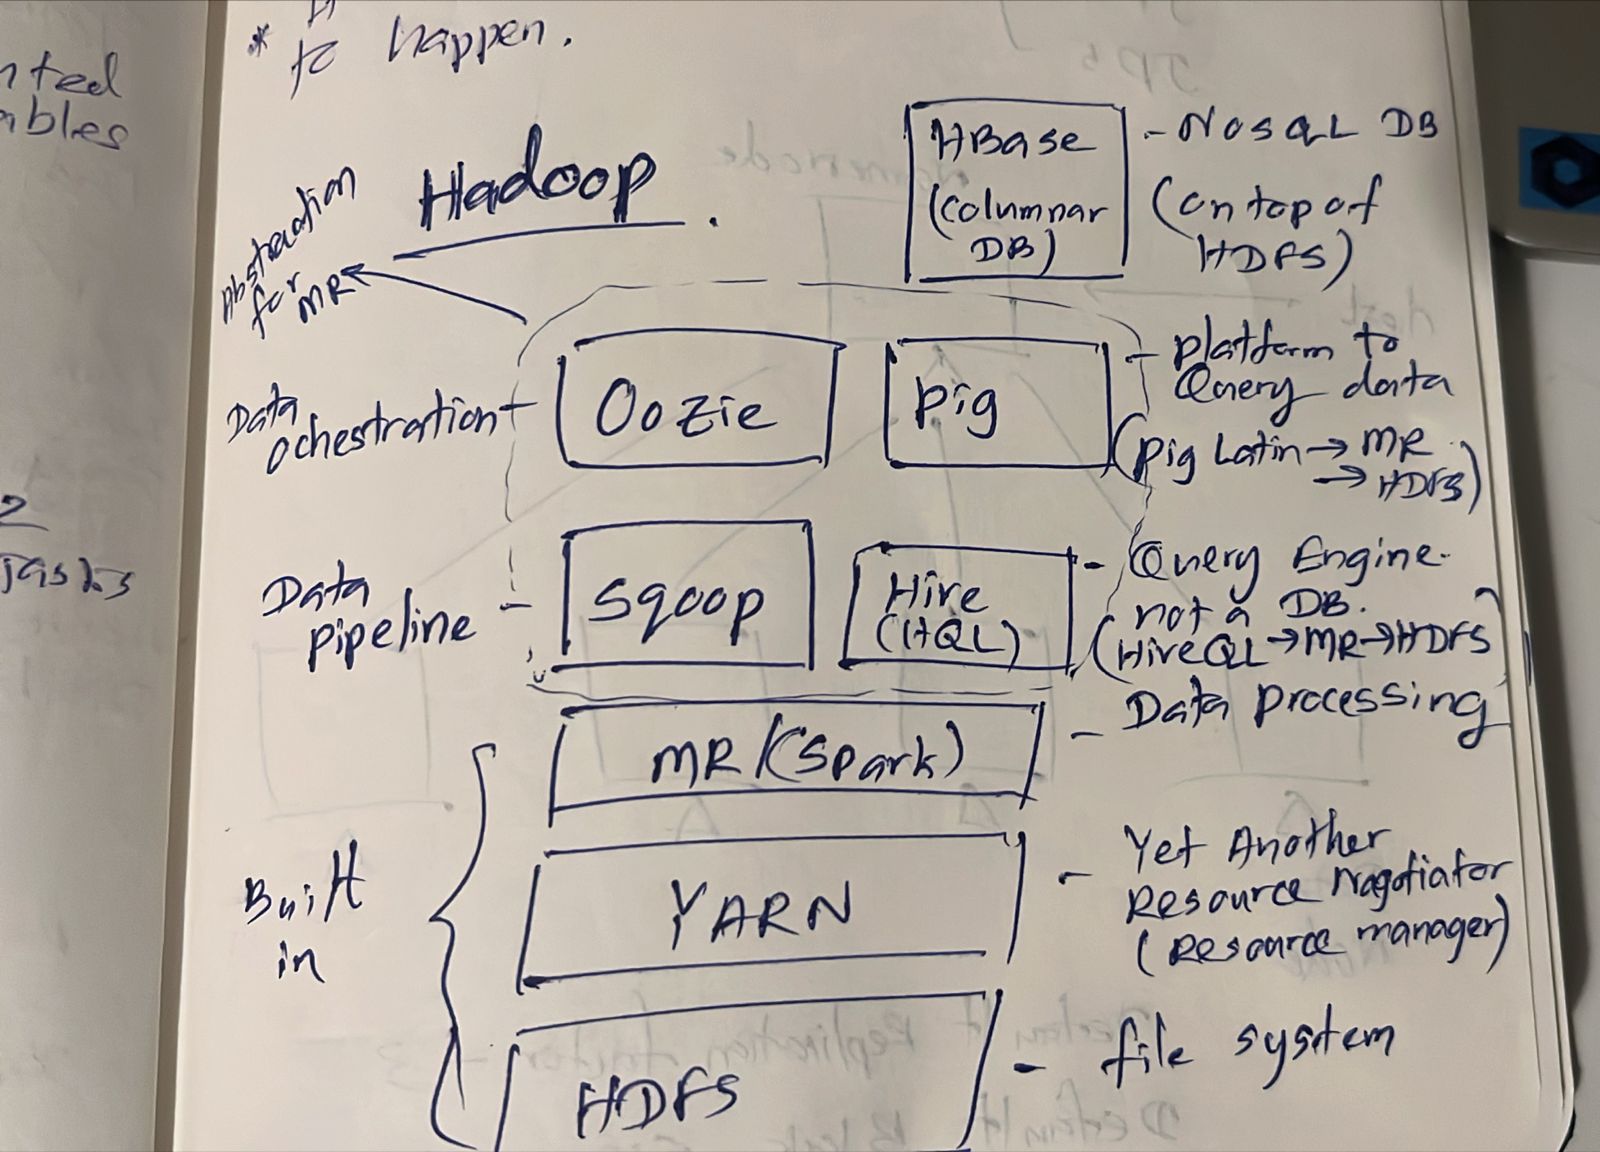 nted
ables
2
Tasks
*
to happen.
Hadoop.
HBase
(Columnar
DB)
- NoSQL DB
(on top of
HDFS)
Abstraction
for
MR
Data
ochestration
Oozie
Pig
- Platform to
Query data
(Pig Latin → MR
→ HDFS)
Data
Pipeline -
Sqoop
Hive
(HQL)
- Query Engine.
not a DB.
(HiveQL → MR → HDFS)
MR/(Spark)
- Data Processing
Built
in
YARN
- Yet Another
Resource Nagotiator
(Resource manager)
HDFS
- file system